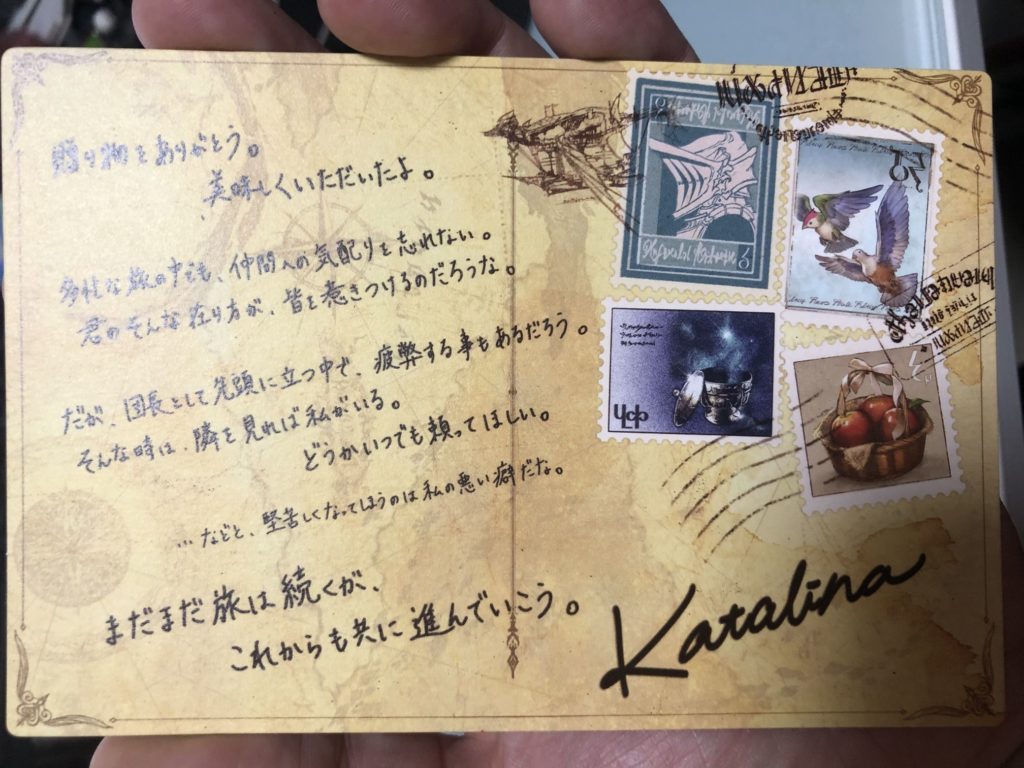 贈り物をありがとう。
美味しくいただいたよ。
多忙な旅の中でも、仲間への気配りを忘れない。
君のそんな在り方が、皆を惹きつけるのだろうな。
だが、団長として先頭に立つ中で、疲弊する事もあるだろう。
そんな時は、隣を見れば私がいる。
どうかいつでも頼ってほしい。
…などと、堅苦しくなってしまうのは私の悪い癖だな。
まだまだ旅は続くが、
これからも共に進んでいこう。
Katalina